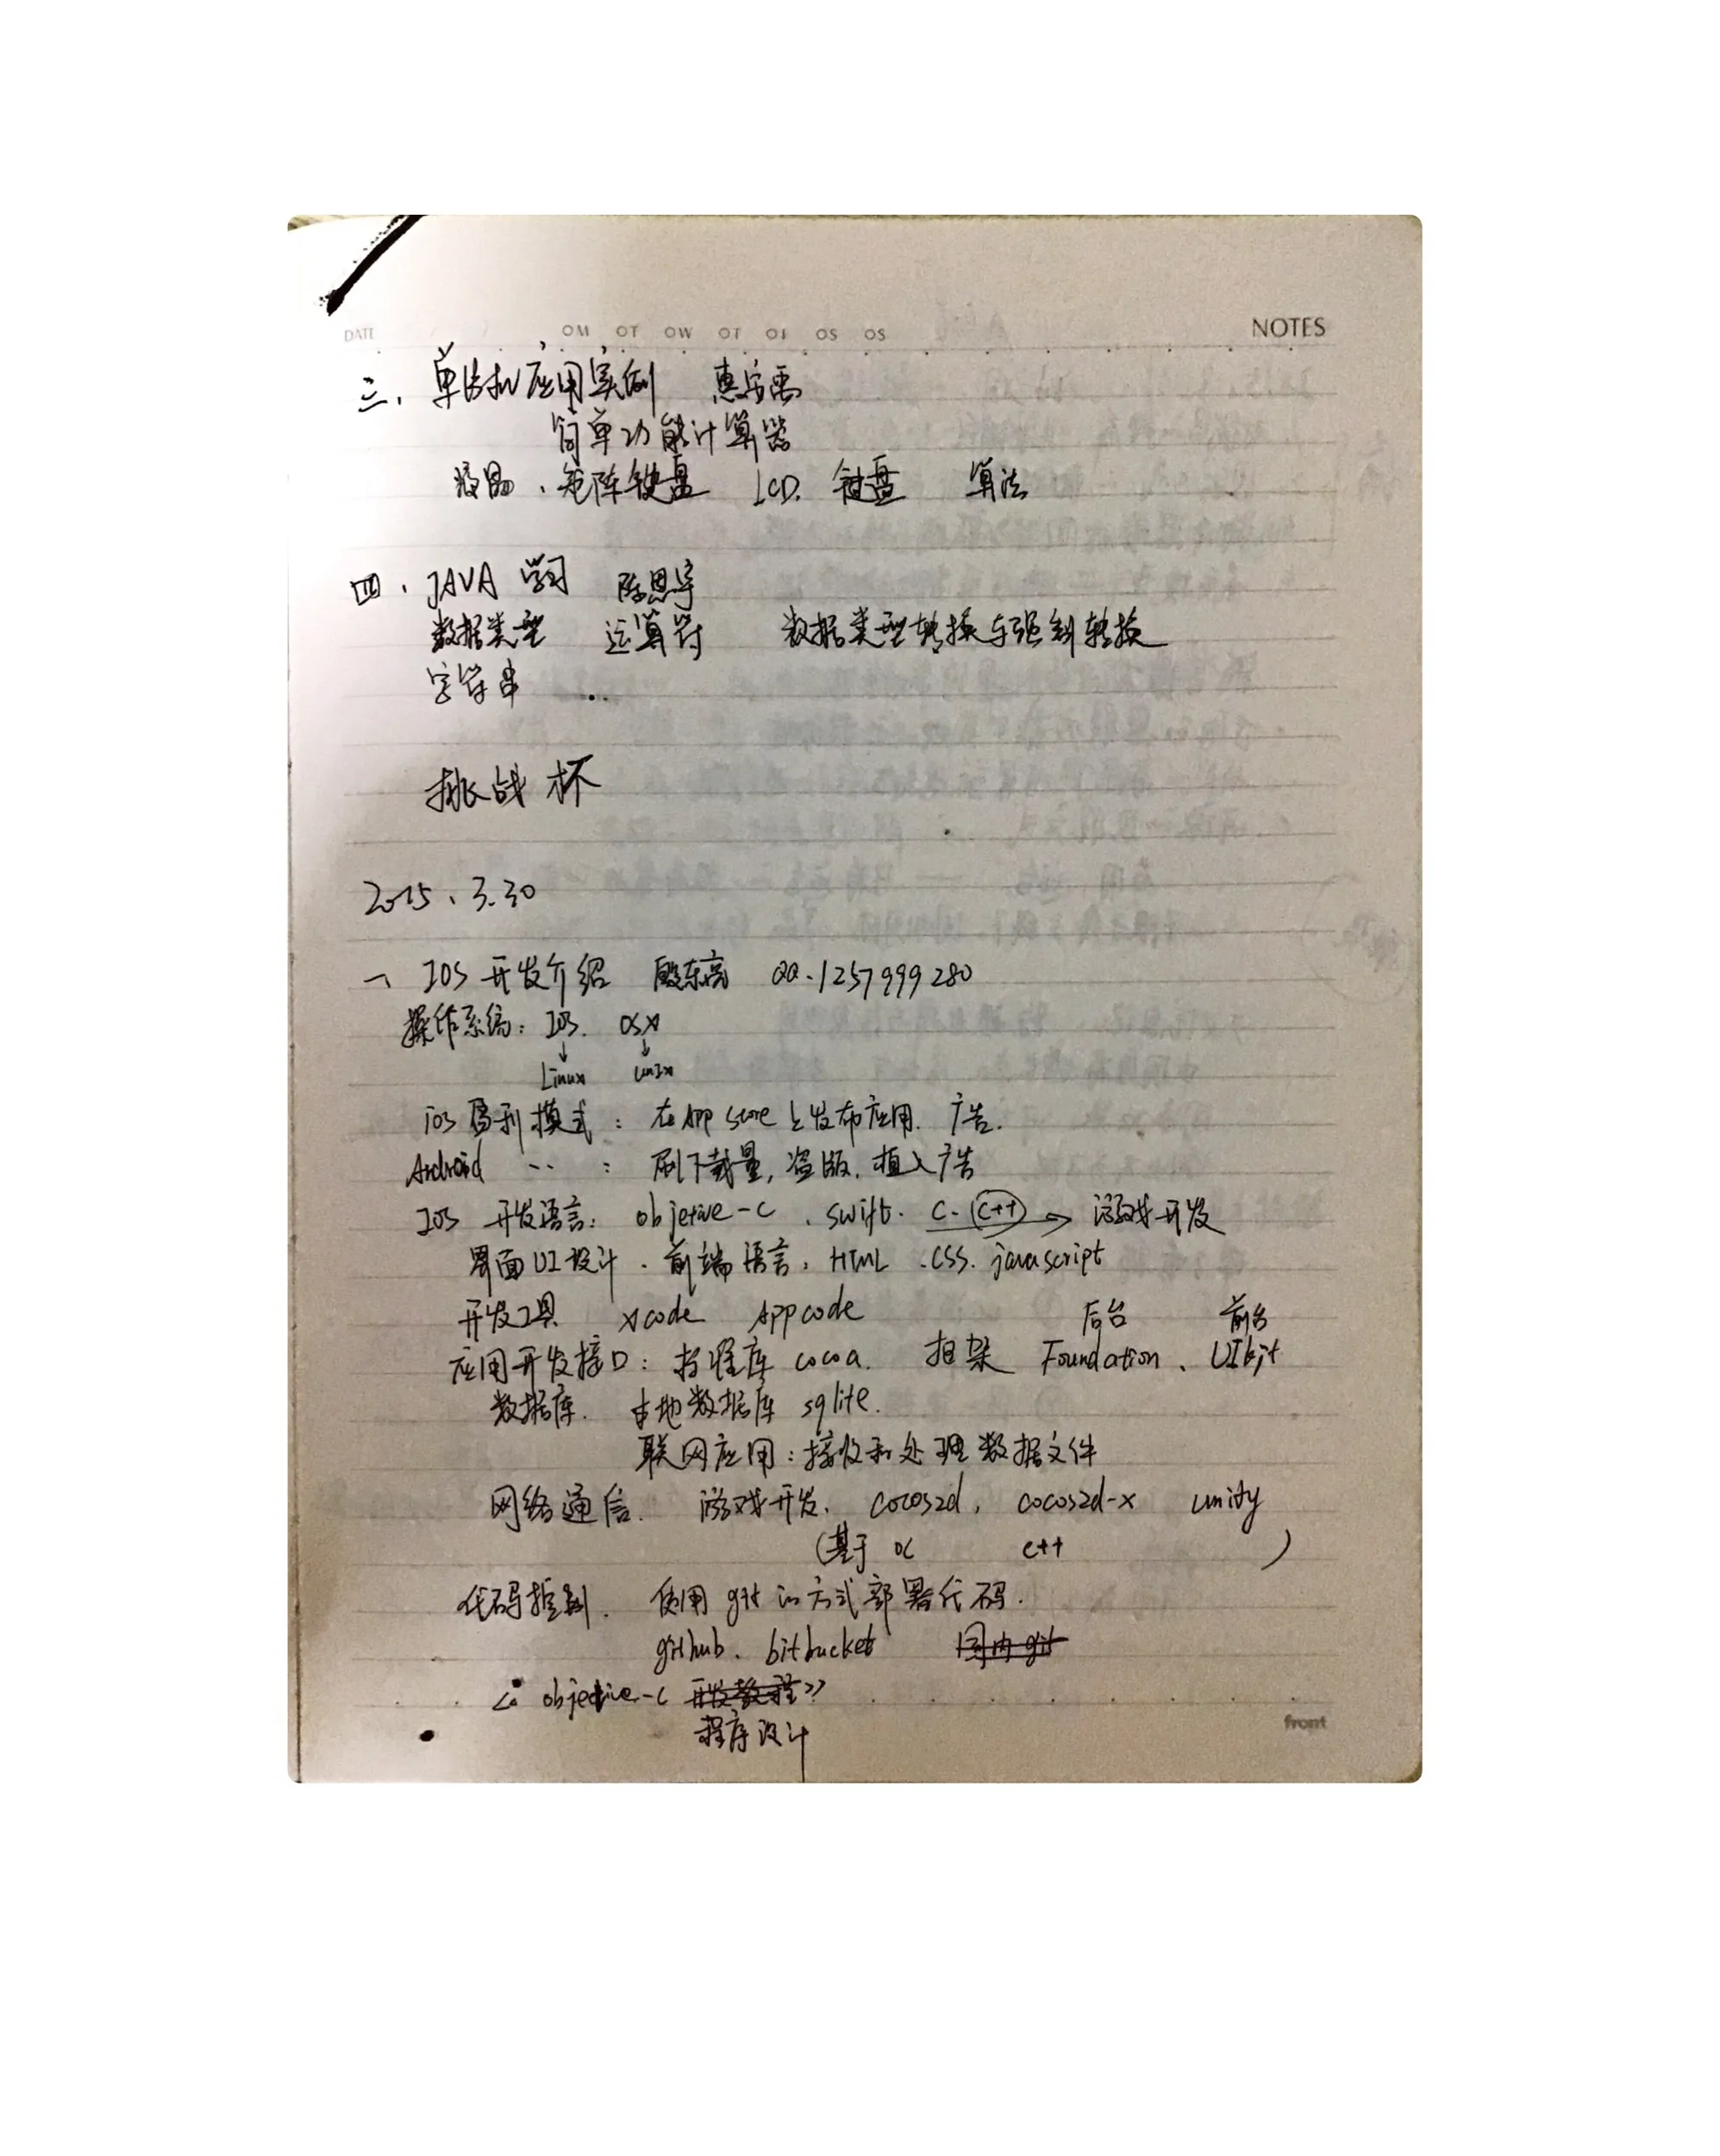 DATE OM OT OW OT OF OS OS NOTES
三、单片机应用实例
简单功能计算器
液晶、矩阵键盘 LCD. 键盘 算法
四、JAVA 学习 陈思宇
数据类型 运算符 数据类型转换与强制转换
字符串 ...
挑战杯
2015、3.30
一、IOS 开发介绍 殷东亮 QQ.1257999280
操作系统: IOS. OSX
↓ ↓
Linux Unix
ios 盈利模式: 在App Store上发布应用. 广告.
Android ‥ : 刷下载量, 盗版. 植入广告
IOS 开发语言: objetive-C 、swift. C. C++ → 游戏开发
界面UI设计. 前端语言, HTML .CSS. javascript
开发工具 xcode Appcode 后台 前台
应用开发接口: 接口库 cocoa. 框架 Foundation、UIkit
数据库. 本地数据库 sqlite.
联网应用:接收和处理数据文件
网络通信. 游戏开发. cocos2d, cocos2d-x unity
(基于 oc c++ )
代码控制. 使用git的方式部署代码.
github. bitbucket 国内git
《 objective-c 开发教程》
程序设计
front